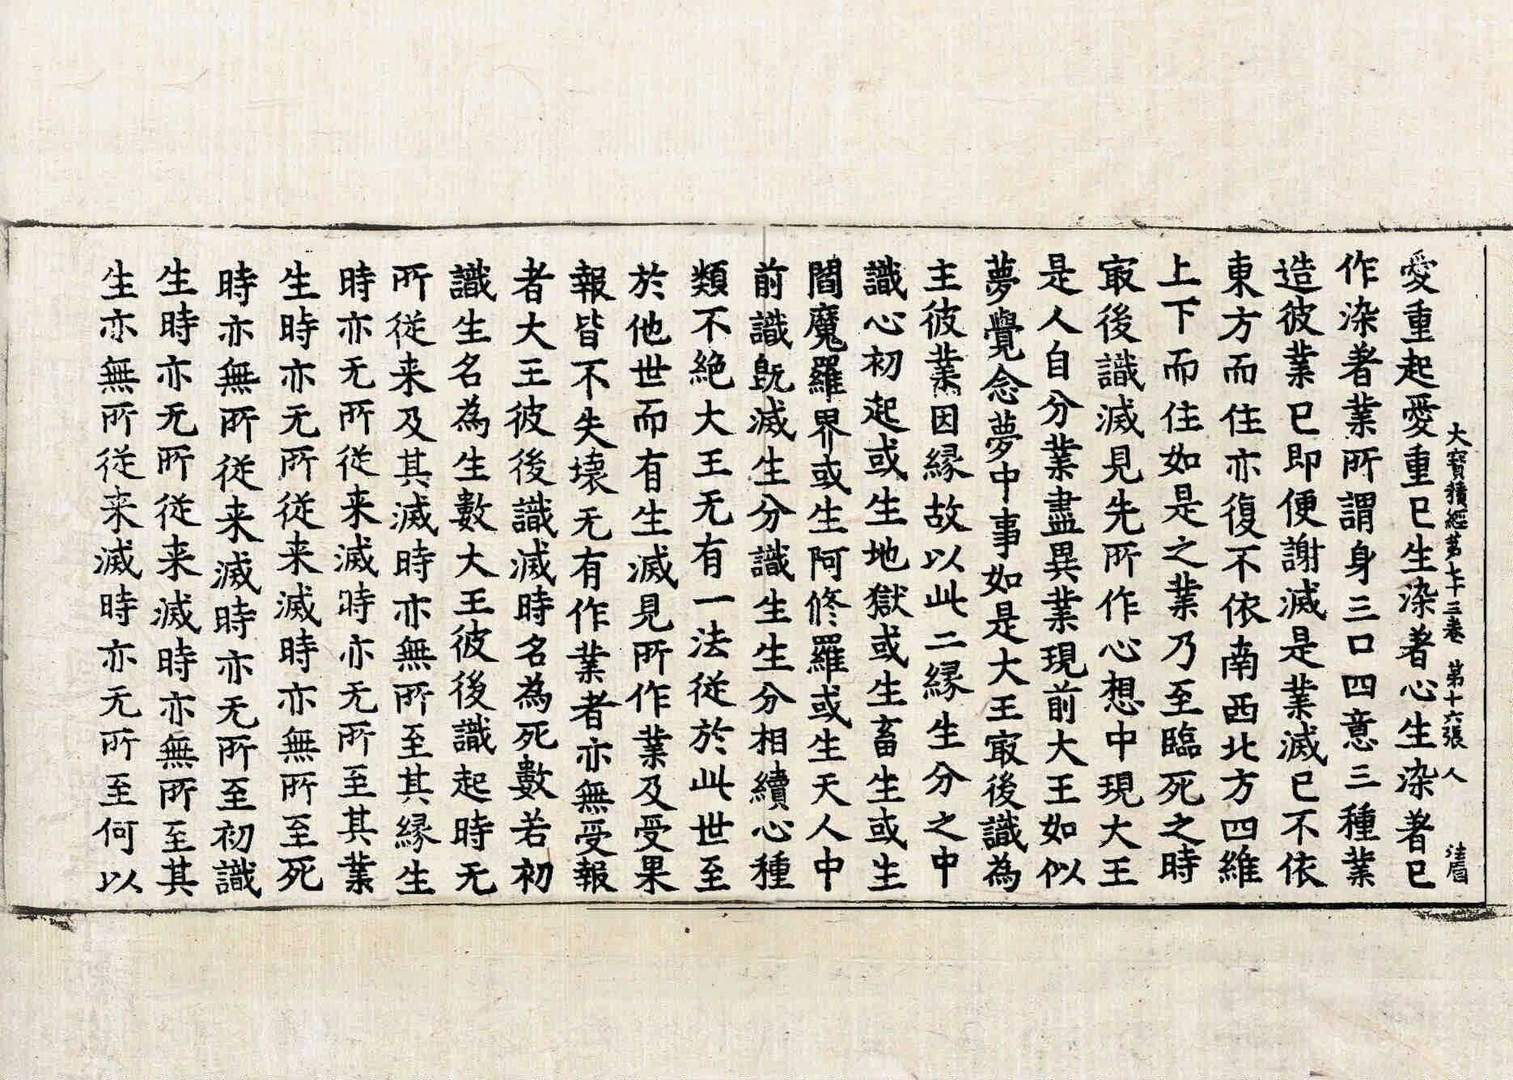 大寶積經第七十三卷 第十六張 人
愛重起愛重已生染著心生染著已
作染著業所謂身三口四意三種業
造彼業已即便謝滅是業滅已不依
東方而住亦復不依南西北方四維
上下而住如是之業乃至臨死之時
㝡後識滅見先所作心想中現大王
是人自分業盡異業現前大王如似
夢覺念夢中事如是大王㝡後識為
主彼業因緣故以此二緣生分之中
識心初起或生地獄或生畜生或生
閻魔羅界或生阿修羅或生天人中
前識既滅生分識生生分相續心種
類不絕大王无有一法従於此世至
於他世而有生滅見所作業及受果
報皆不失壞无有作業者亦無受報
者大王彼後識滅時名為死數若初
識生名為生數大王彼後識起時无
所従来及其滅時亦無所至其緣生
時亦无所従来滅時亦无所至其業
生時亦无所従来滅時亦無所至死
時亦無所従来滅時亦无所至初識
生時亦无所従来滅時亦無所至其
生亦無所従来滅時亦无所至何以